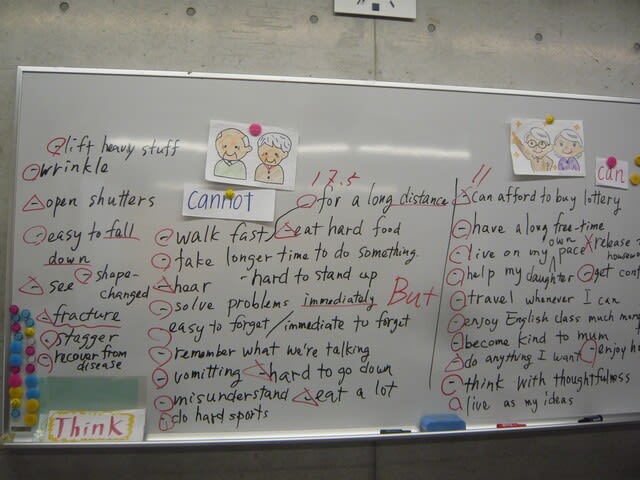 lift heavy stuff
wrinkle
open shutters
easy to fall
down
see
shape-
changed
fracture
stagger
recover from
disease
Think
cannot
17.5
for a long distance
walk fast
eat hard food
take longer time to do something.
hear
- hard to stand up
solve problems immediately
easy to forget / immediate to forget
remember what we're talking
vomitting
hard to go down
misunderstand
eat a lot
do hard sports
But
11
can
can afford to buy lottery
have a long free-time
live on my own pace
release
help my daughter
get
travel whenever I can
enjoy English class much more
become kind to mum
do anything I want
enjoy
think with thoughtfulness
live as my ideas